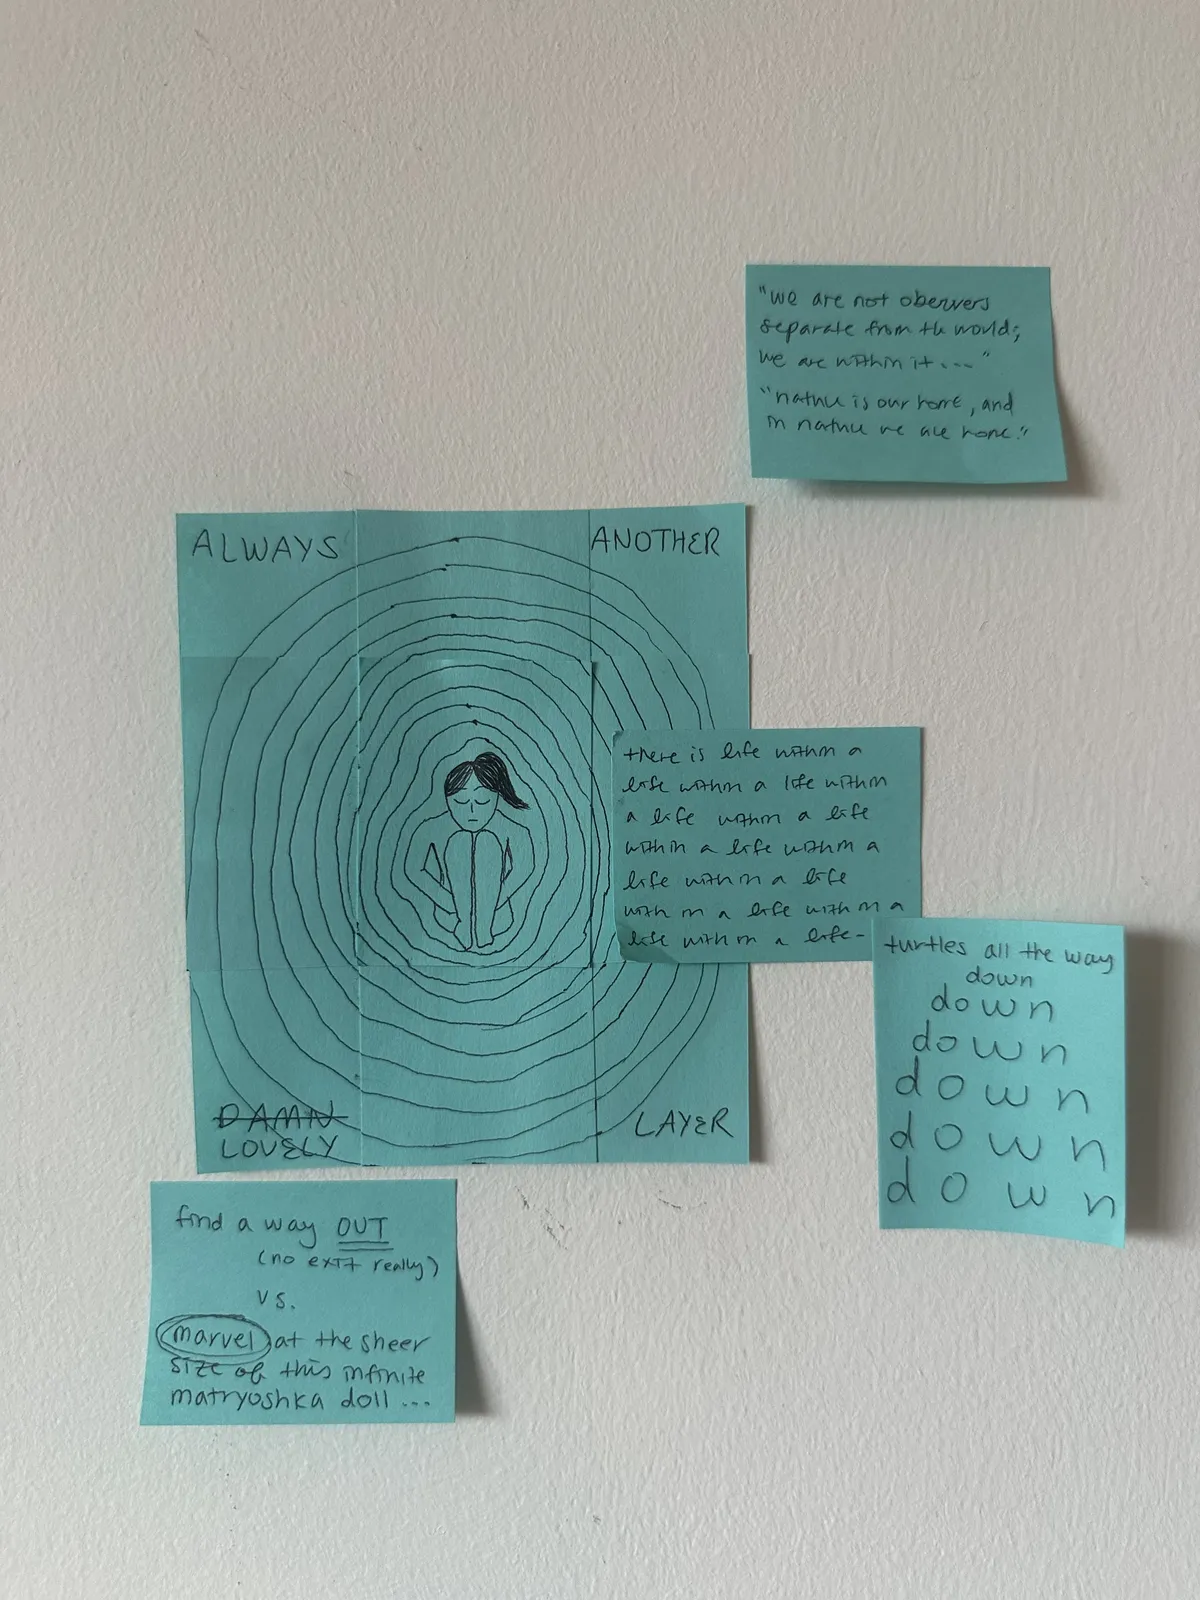 "we are not obervers
separate from the world;
we are within it ..."
"nature is our home, and
in nature we are home."
ALWAYS
ANOTHER
DAMN
LOVELY
LAYER
there is life within a
life within a life within
a life within a life
within a life within a
life within a life
within a life within a
life within a life-
turtles all the way
down
down
down
down
down
down
find a way OUT
(no exit really)
vs.
marvel at the sheer
size of this infinite
matryoshka doll ...